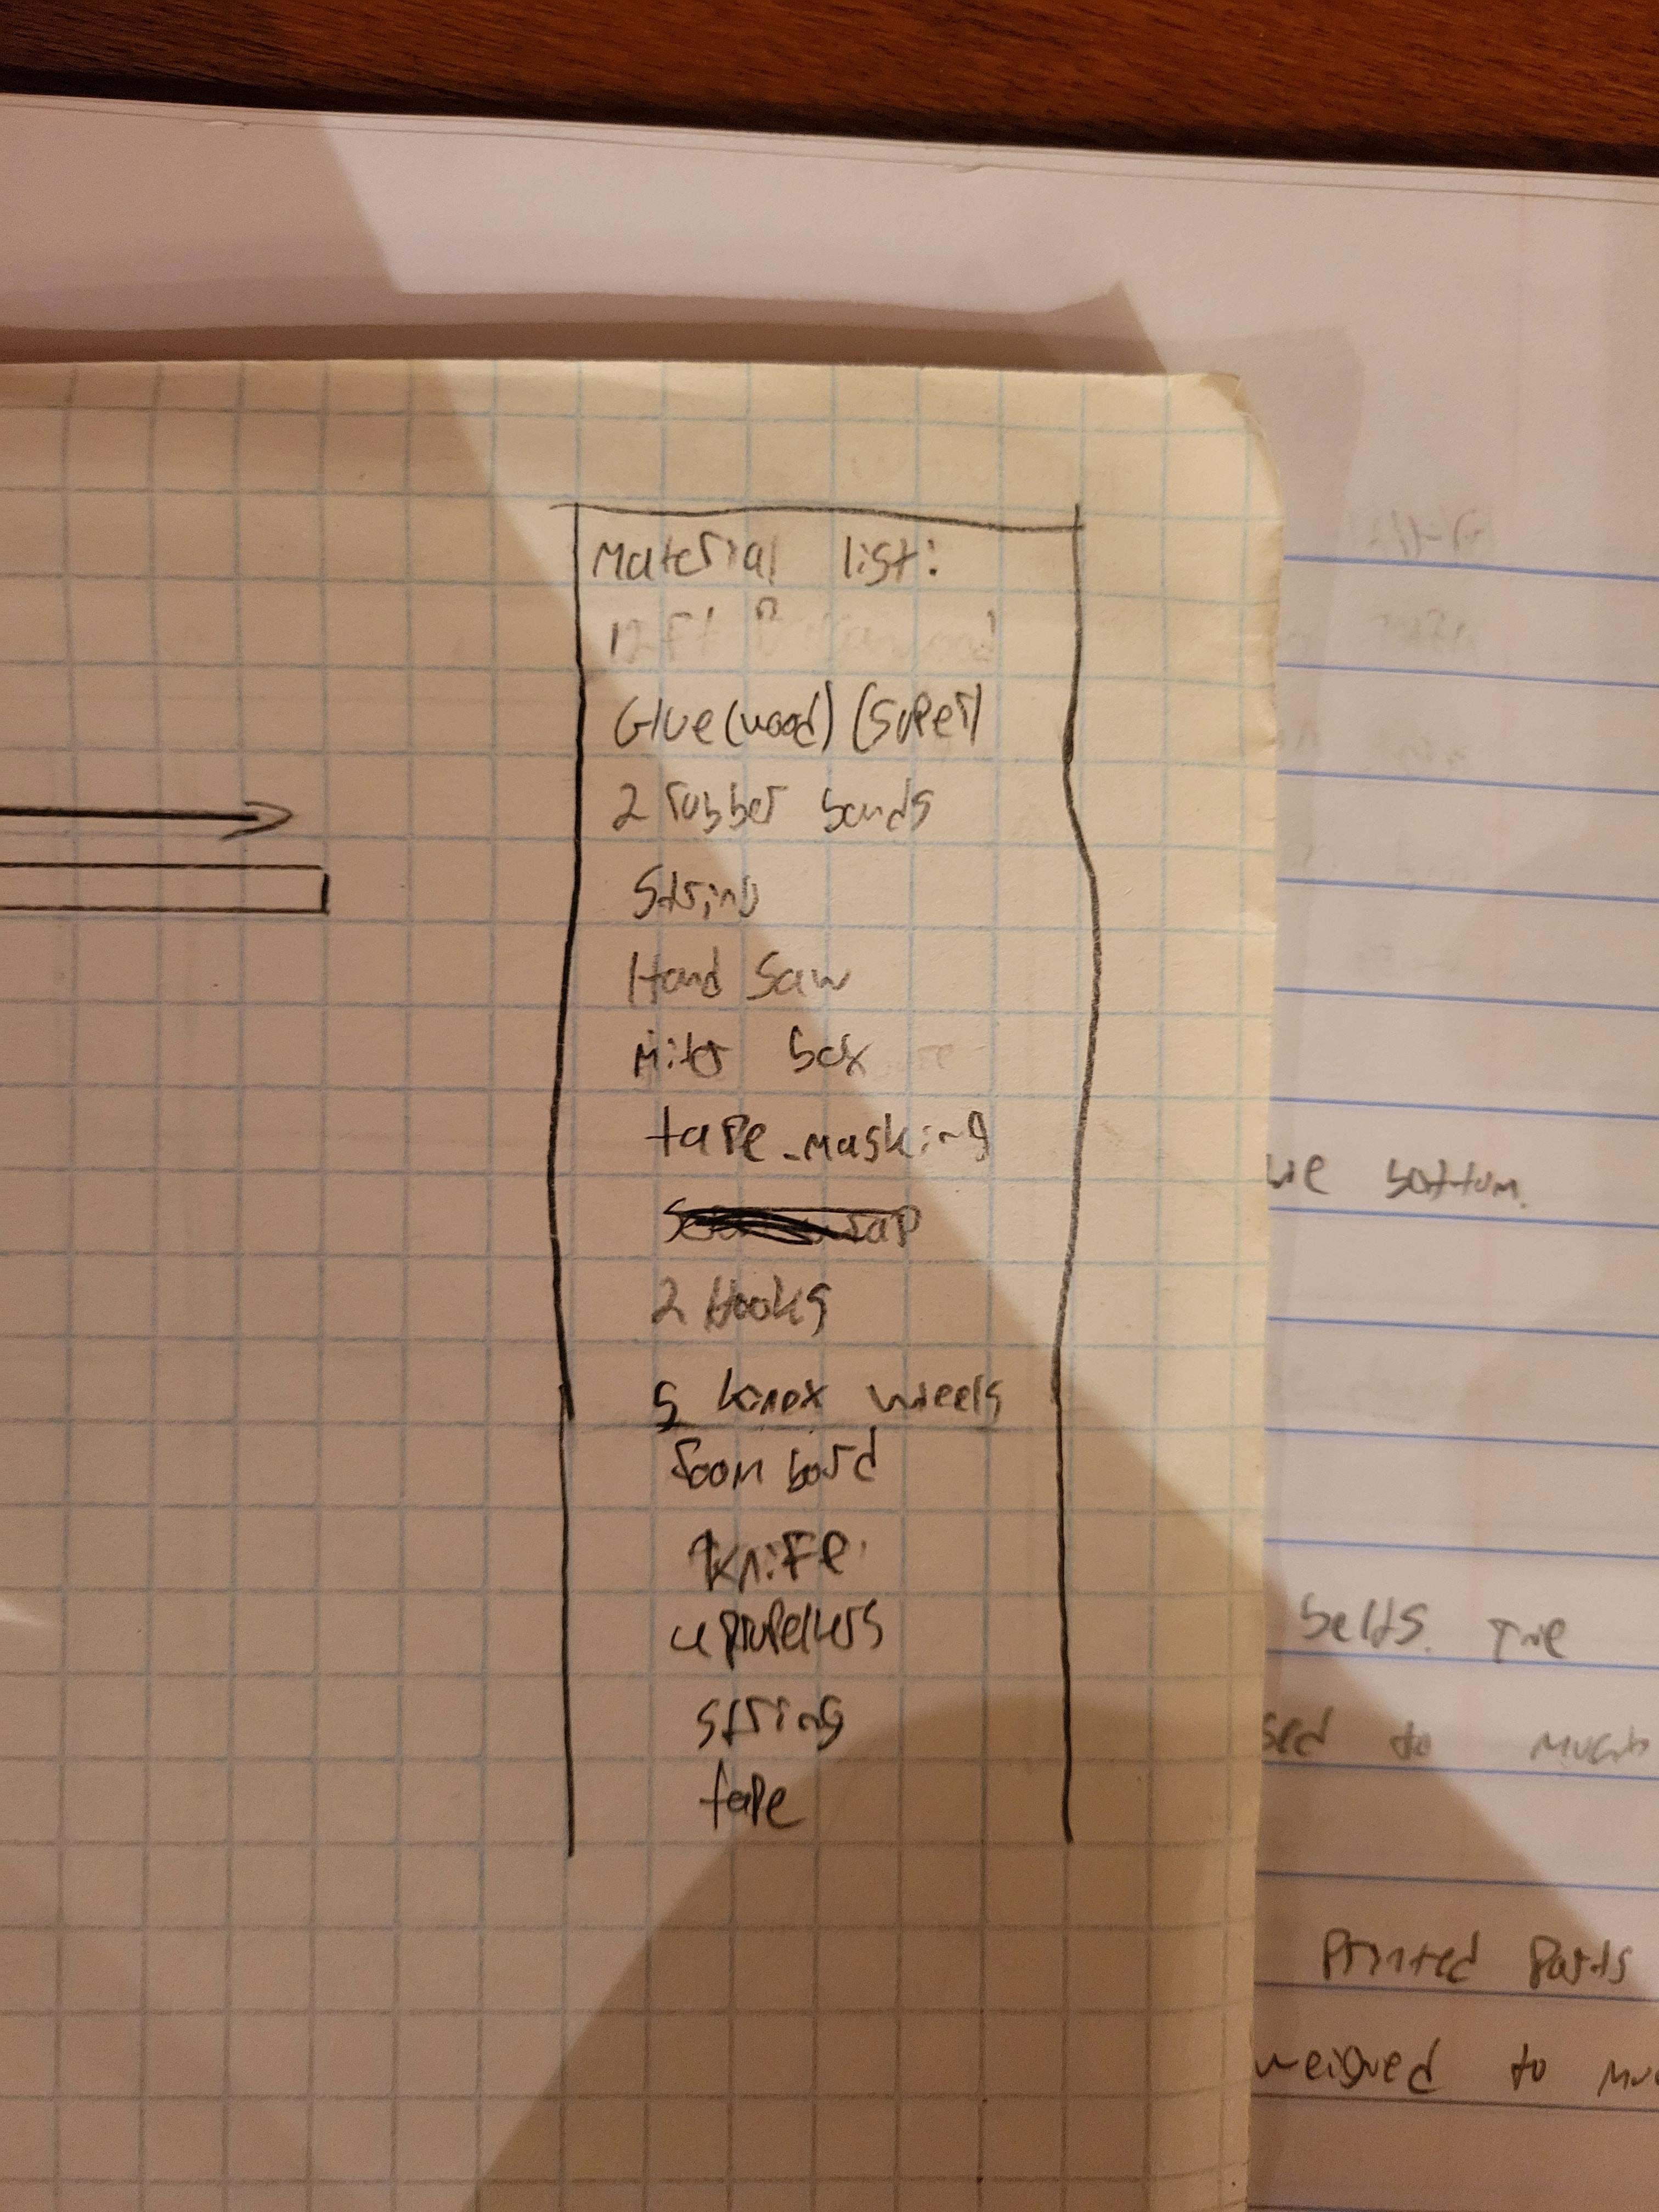 Material list:
12 Ft
Glue (wood) (super)
2 rubber bands
String
Hand Saw
miter box
tape - masking
2 Hooks
5 knex wheels
foam bord
knife
4 propellers
string
tape
bottom.
belts. The
to much
Printed Parts
weighed to